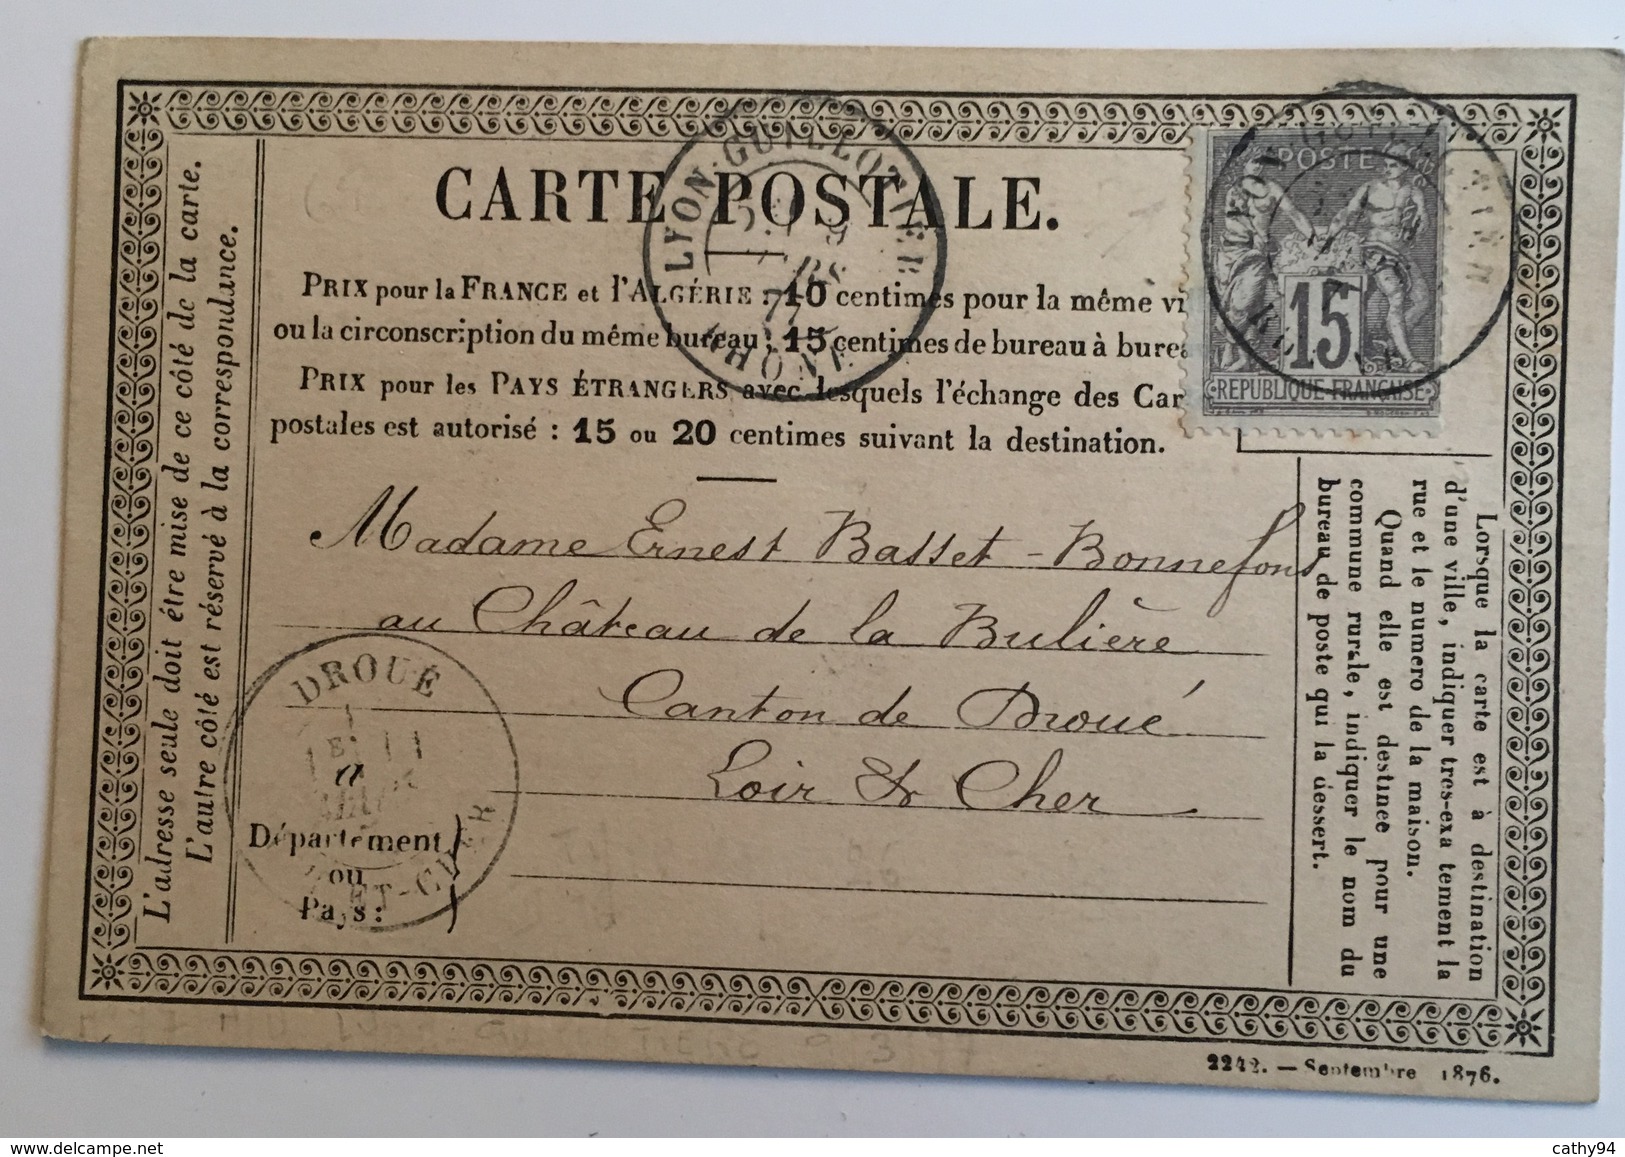 CARTE POSTALE.
PRIX pour la FRANCE et l'ALGÉRIE : 10 centimes pour la même vi
ou la circonscription du même bureau ; 15 centimes de bureau à burea
PRIX pour les PAYS ÉTRANGERS avec lesquels l'échange des Car
postales est autorisé : 15 ou 20 centimes suivant la destination.
L'adresse seule doit être mise de ce côté de la carte.
L'autre côté est réservé à la correspondance.
LYON-GUILLOTIERE
9
MARS
77
RHONE
POSTE
15
REPUBLIQUE FRANÇAISE
Madame Ernest Basset-Bonnefons
au Château de la Bulière
Canton de Droué
Loir & Cher
DROUÉ
11
MARS
ET-CHER
a
Département
ou
Pays :
Lorsque la carte est à destination
d'une ville, indiquer tres-exa tement la
rue et le numero de la maison.
Quand elle est destinée pour une
commune rurale, indiquer le nom du
bureau de poste qui la dessert.
2242. — Septembre 1876.
cathy94